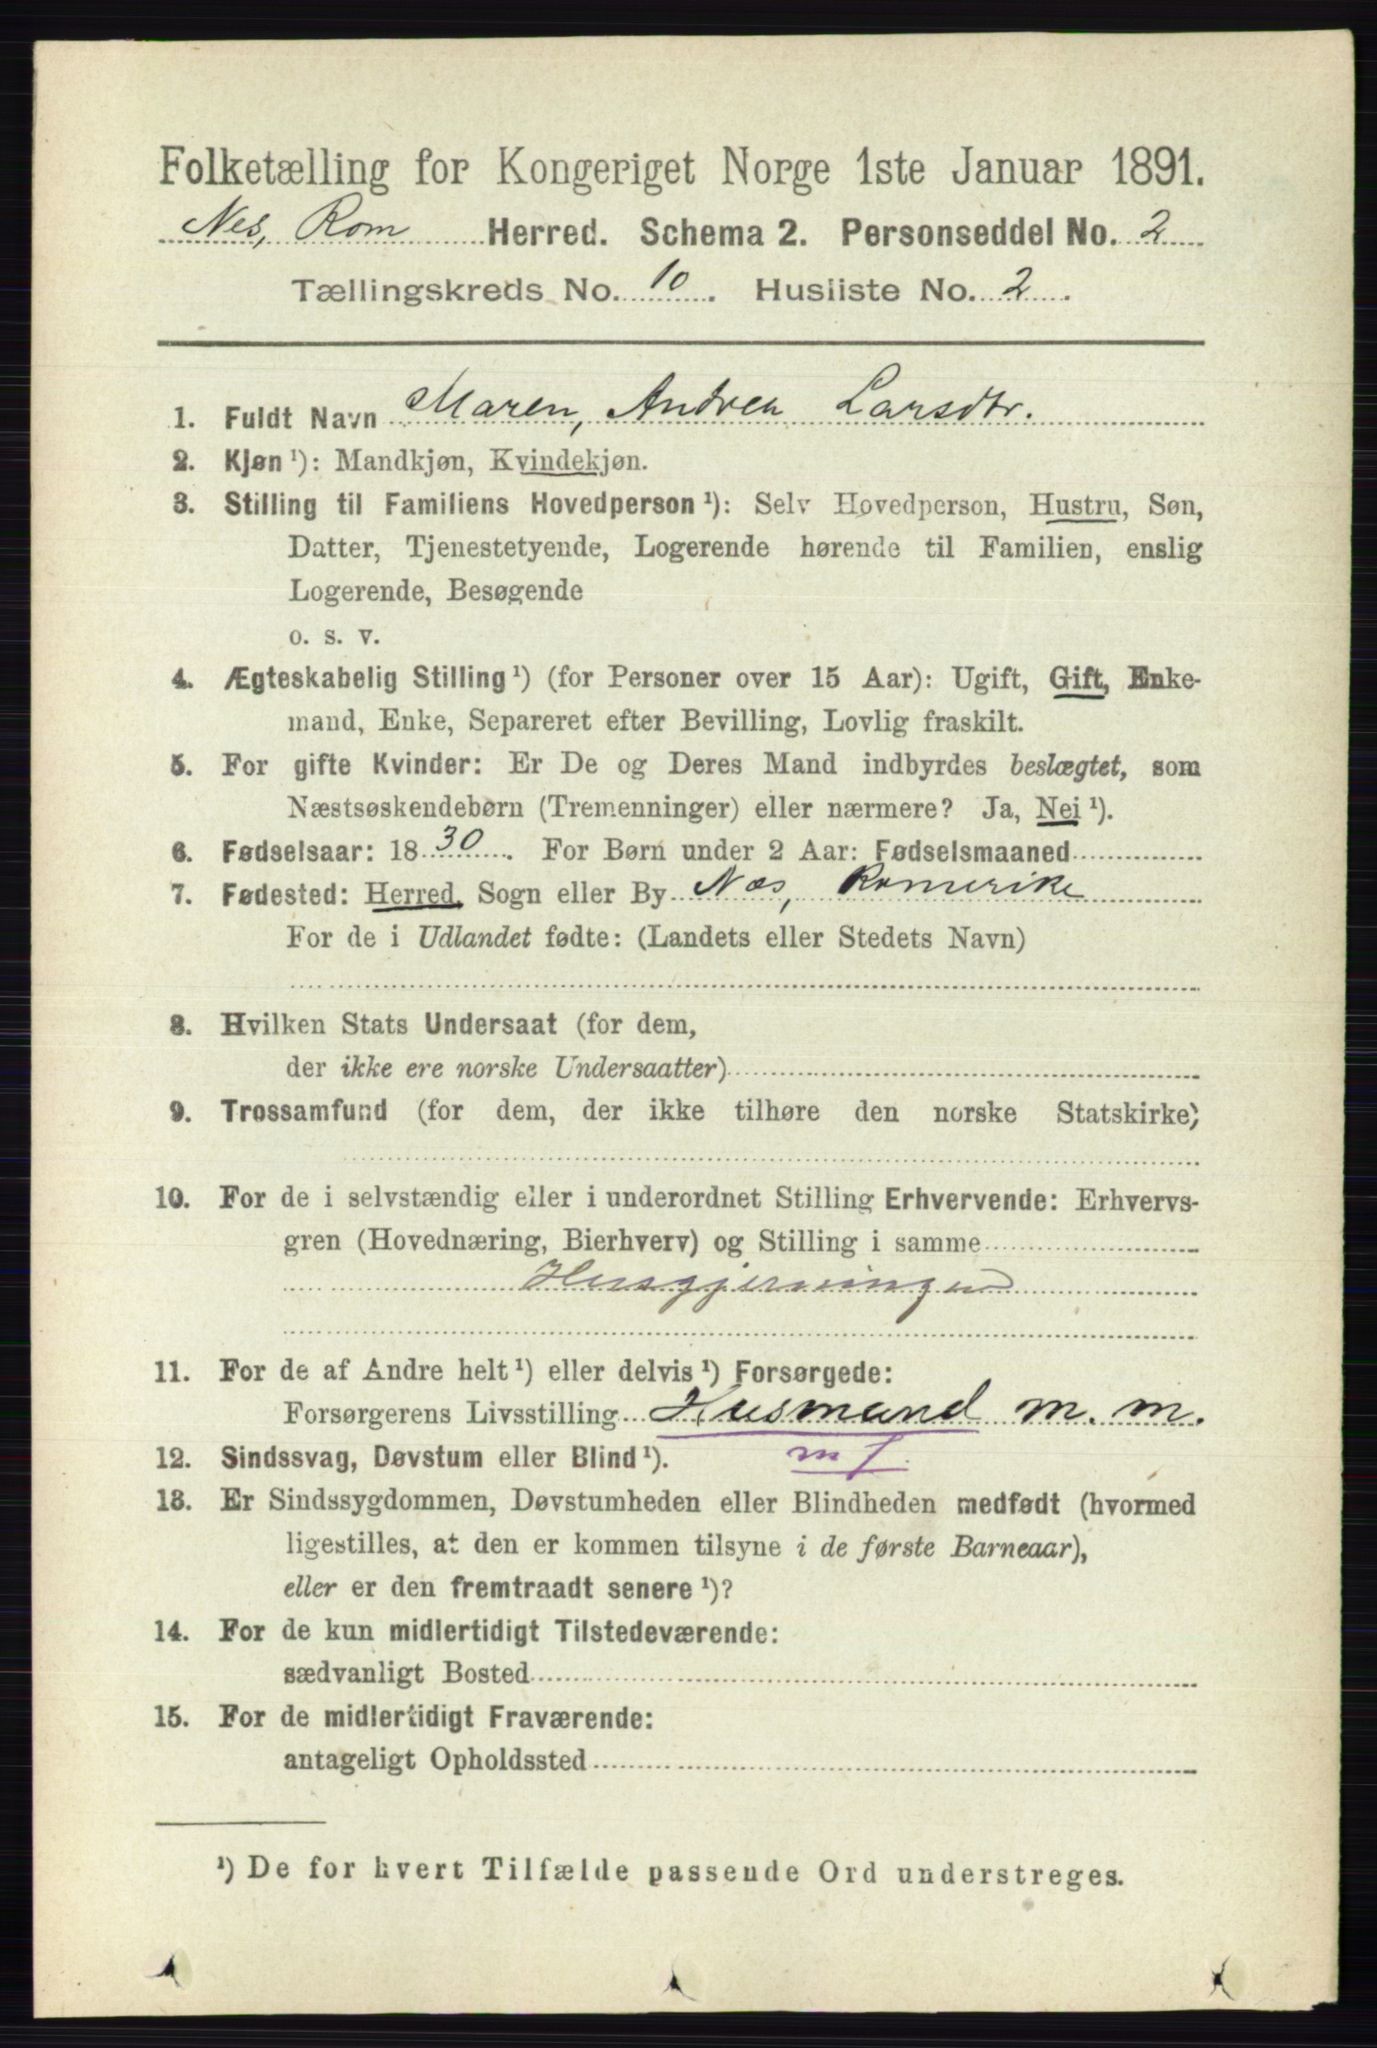 Folketælling for Kongeriget Norge 1ste Januar 1891.
Nes, Rom Herred. Schema 2. Personseddel No. 2
Tællingskreds No. 10. Husliste No. 2.
1. Fuldt Navn Maren, Andrea Larsdtr.
2. Kjøn ¹): Mandkjøn, Kvindekjøn.
3. Stilling til Familiens Hovedperson ¹): Selv Hovedperson, Hustru, Søn,
Datter, Tjenestetyende, Logerende hørende til Familien, enslig
Logerende, Besøgende
o. s. v.
4. Ægteskabelig Stilling ¹) (for Personer over 15 Aar): Ugift, Gift, Enke-
mand, Enke, Separeret efter Bevilling, Lovlig fraskilt.
5. For gifte Kvinder: Er De og Deres Mand indbyrdes beslægtet, som
Næstsøskendebørn (Tremenninger) eller nærmere? Ja, Nei ¹).
6. Fødselsaar: 1830. For Børn under 2 Aar: Fødselsmaaned
7. Fødested: Herred, Sogn eller By Næs, Romerike
For de i Udlandet fødte: (Landets eller Stedets Navn)
8. Hvilken Stats Undersaat (for dem,
der ikke ere norske Undersaatter)
9. Trossamfund (for dem, der ikke tilhøre den norske Statskirke)
10. For de i selvstændig eller i underordnet Stilling Erhvervende: Erhvervs-
gren (Hovednæring, Bierhverv) og Stilling i samme
Husgjerningen
11. For de af Andre helt ¹) eller delvis ¹) Forsørgede:
Forsørgerens Livsstilling Husmand m. m.
12. Sindssvag, Døvstum eller Blind ¹).
13. Er Sindssygdommen, Døvstumheden eller Blindheden medfødt (hvormed
ligestilles, at den er kommen tilsyne i de første Barneaar),
eller er den fremtraadt senere ¹)?
14. For de kun midlertidigt Tilstedeværende:
sædvanligt Bosted
15. For de midlertidigt Fraværende:
antageligt Opholdssted
¹) De for hvert Tilfælde passende Ord understreges.